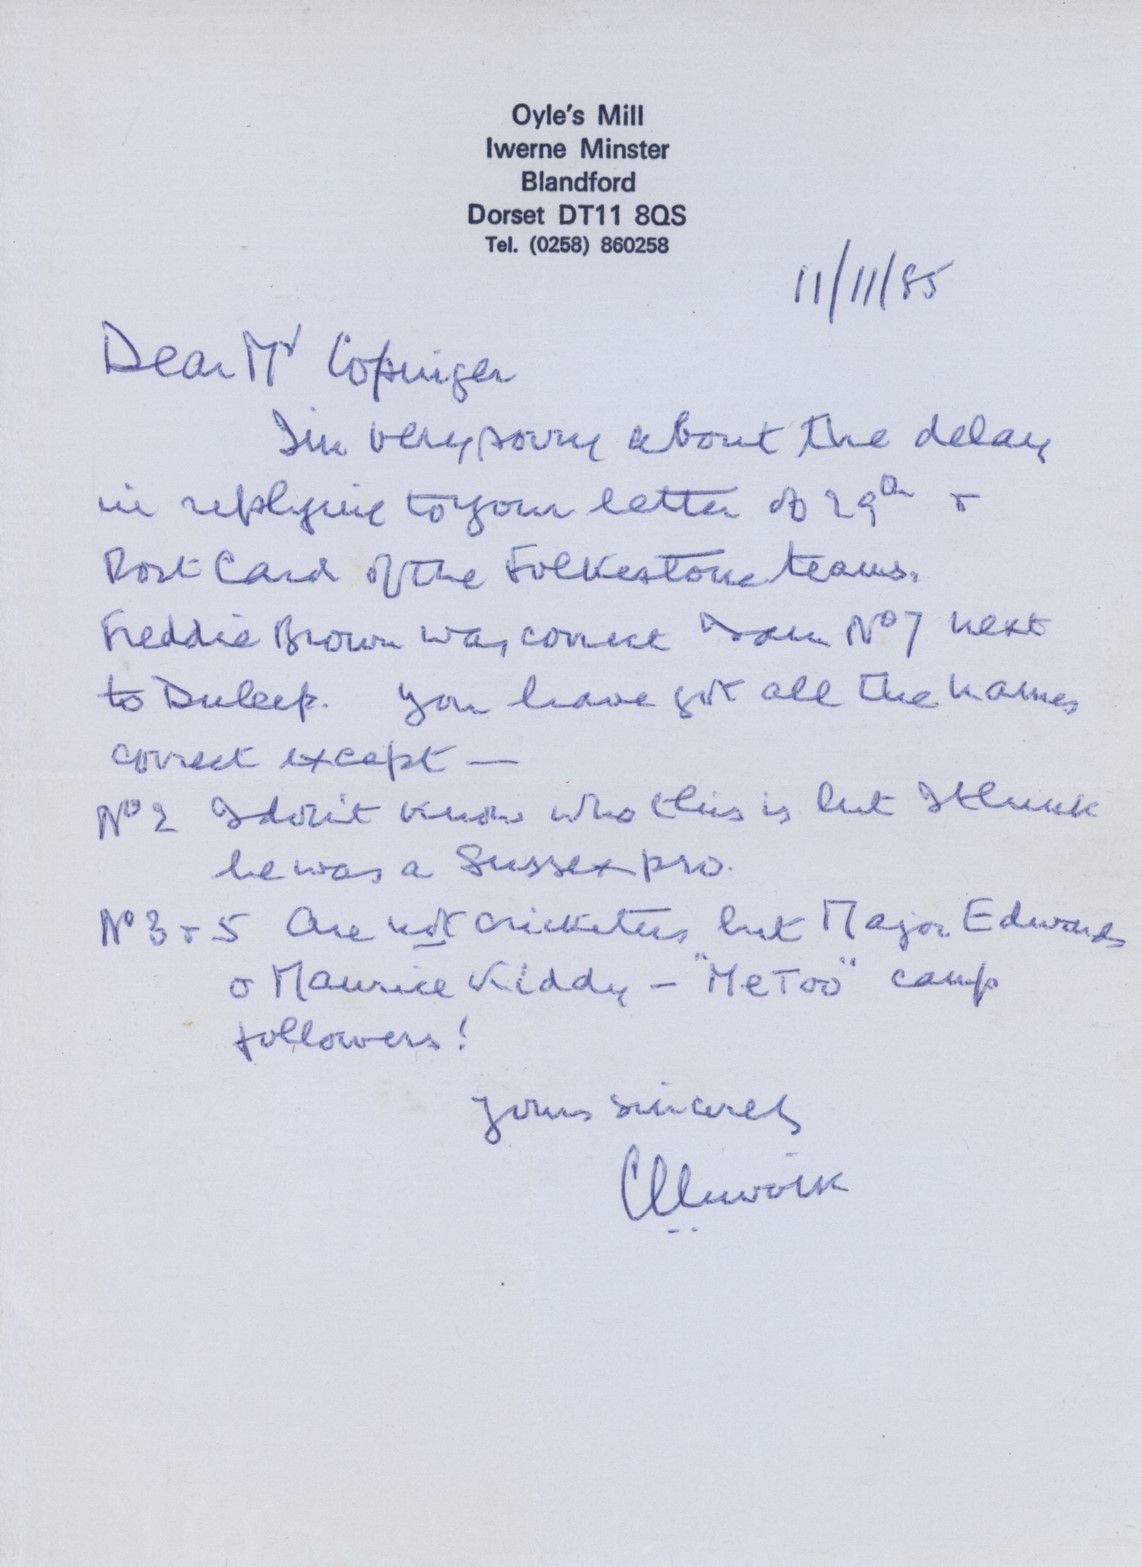 Oyle's Mill
Iwerne Minster
Blandford
Dorset DT11 8QS
Tel. (0258) 860258
11/11/85
Dear Mr Copinger
I'm very sorry about the delay
in replying to your letter of 29th &
Post Card of the Folkestone teams.
Freddie Brown was correct I am No 7 next
to Duleep. You have got all the names
correct except —
No 2 I don't know who this is but I think
he was a Sussex pro.
No 3 & 5 Are not cricketers but Major Edwards
& Maurice Kiddy – "Me Too" camp
followers!
Yours sincerely